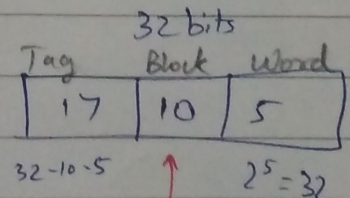 32 bits
Tag Block Word
17 10 5
32-10-5 2⁵ = 32